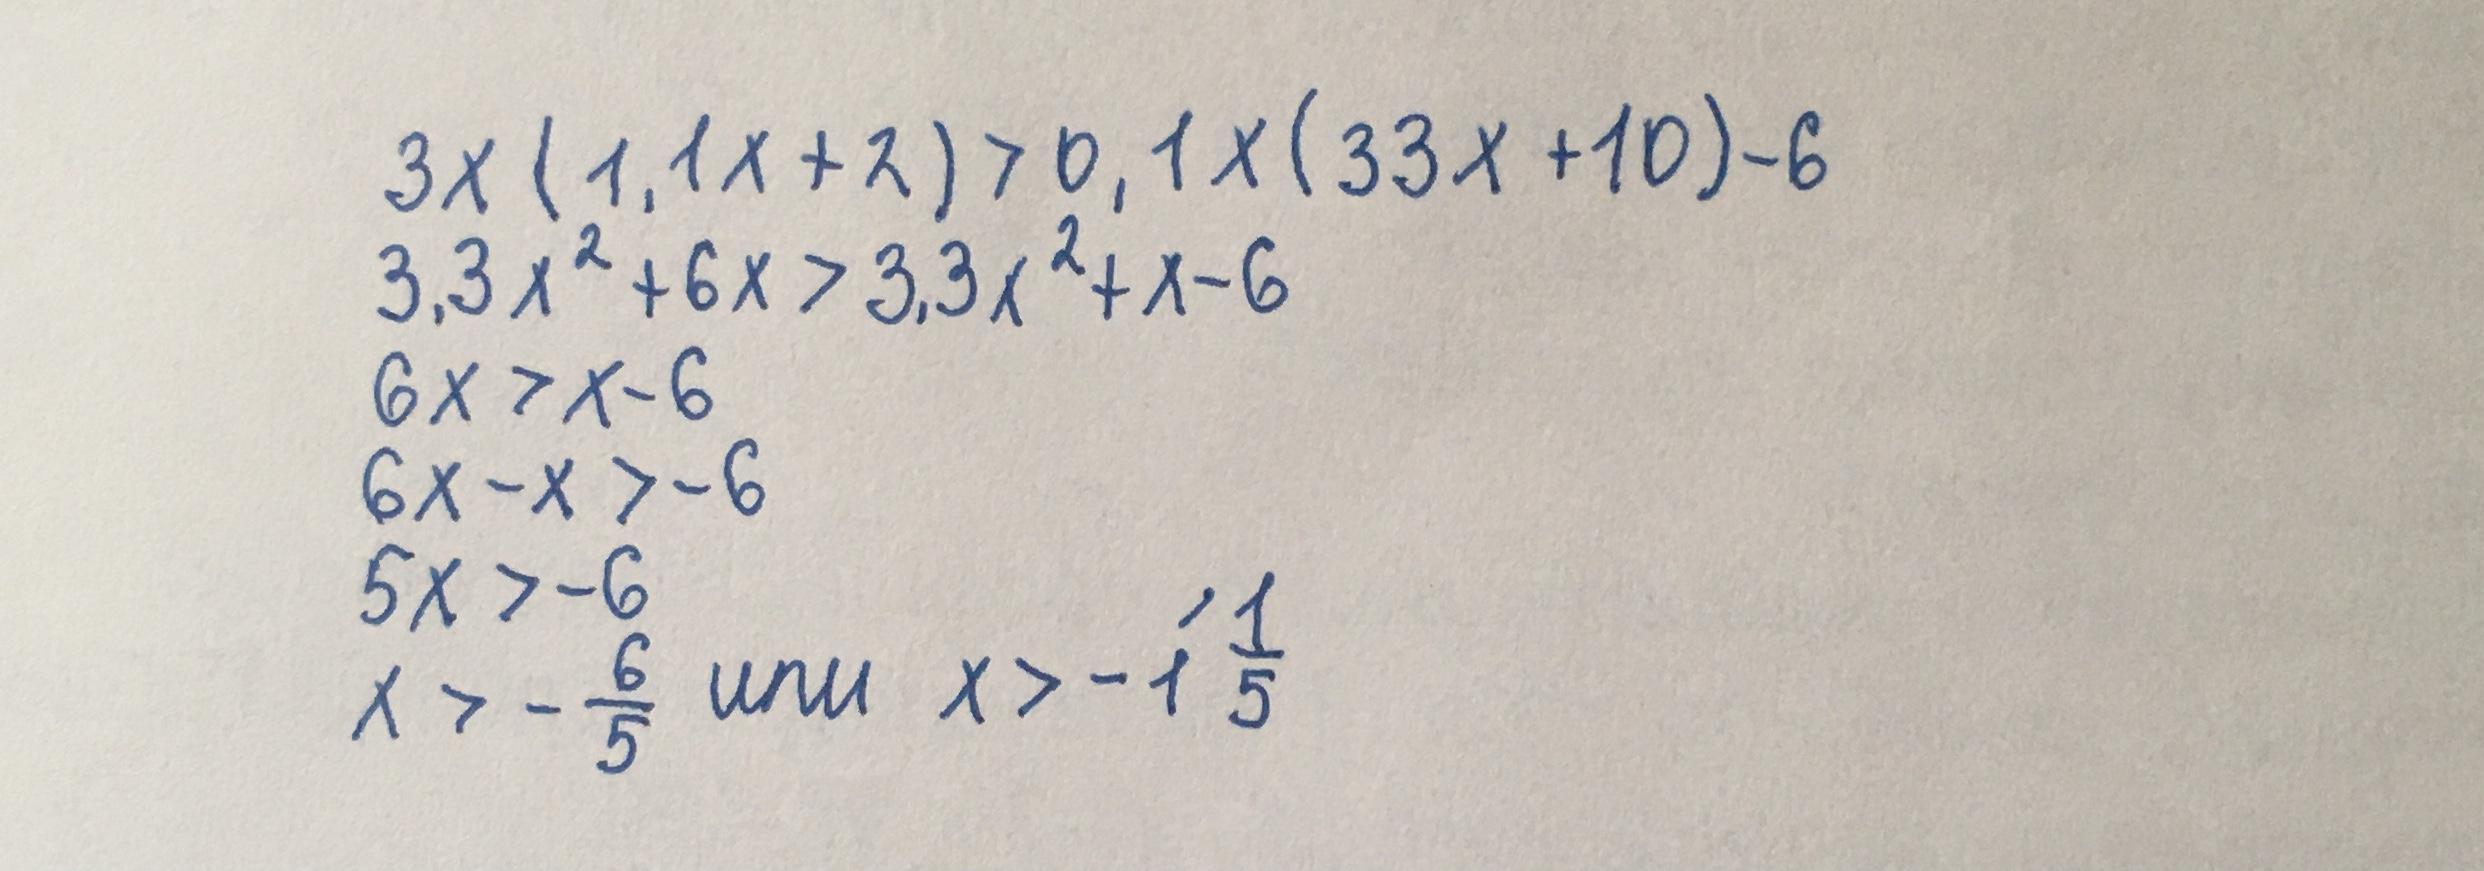 3x(1,1x+2)>0,1x(33x+10)-6
3,3x²+6x>3,3x²+x-6
6x>x-6
6x-x>-6
5x>-6
x>-6/5 или x>-1 1/5